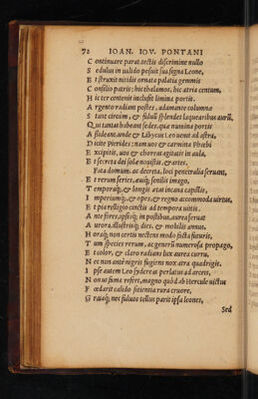 72 IOAN. IOV. PONTANI
Continuare parat tectis discrimine nullo
Sedulus in ualido posuit sua signa Leone,
Et struxit nitidis ornata palatia gemmis
Consilio patris; hic thalamos, hic atria centum,
Hic ter centenis inclusit limina portis.
Argento radiant postes, adamante columnæ
Sunt circum, et fuluū splendet laquearibus aurū,
Qui tantas habeant sedes, quæ numina
Assideant, unde et Libyci Leo uenit ad astra,
Dicite Pierides: nam uos et carmina Phœbi
Excipitis, uos et choreas agitatis in aula,
Et secreta dei solæ nouistis, et artes.
Fata domum, ac decreta, loci penetralia seruant,
Et rerum series, æuiq; senilis imago,
Temporaq; et longis ætas incana capillis,
Imperiumq; et opes, et regno accommoda uirtus,
Et pia relligio cinctis ad tempora uittis.
Ante fores, apsisq; in postibus aurea seruat
Aurora, illustrisq; dies, et mobilis annus,
Horæq; non certis nectens modo facta futuris,
Tum species rerum, ac generū numerosa propago,
Et color, et claro radians lux aurea curru,
Nec non ante nigris fugiens nox atra quadrigis.
Ipse autem Leo sydereas perlatus ad arces,
Non us fuma refert, magno quòd ab Hercule uictus
Fœdarit calido sitientia rura cruore,
Graiaq; nec fuluos tellus parit ipsa leones,
Sed